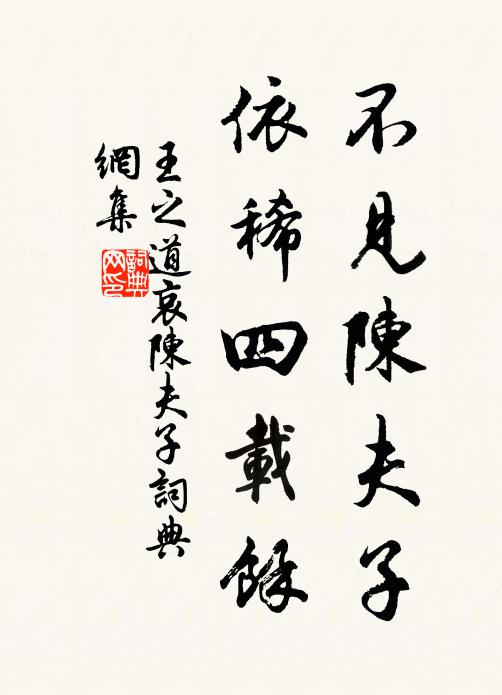 不見陳夫子
依稀四載餘
王之道哀陳夫子詞典
網集
詞典網印